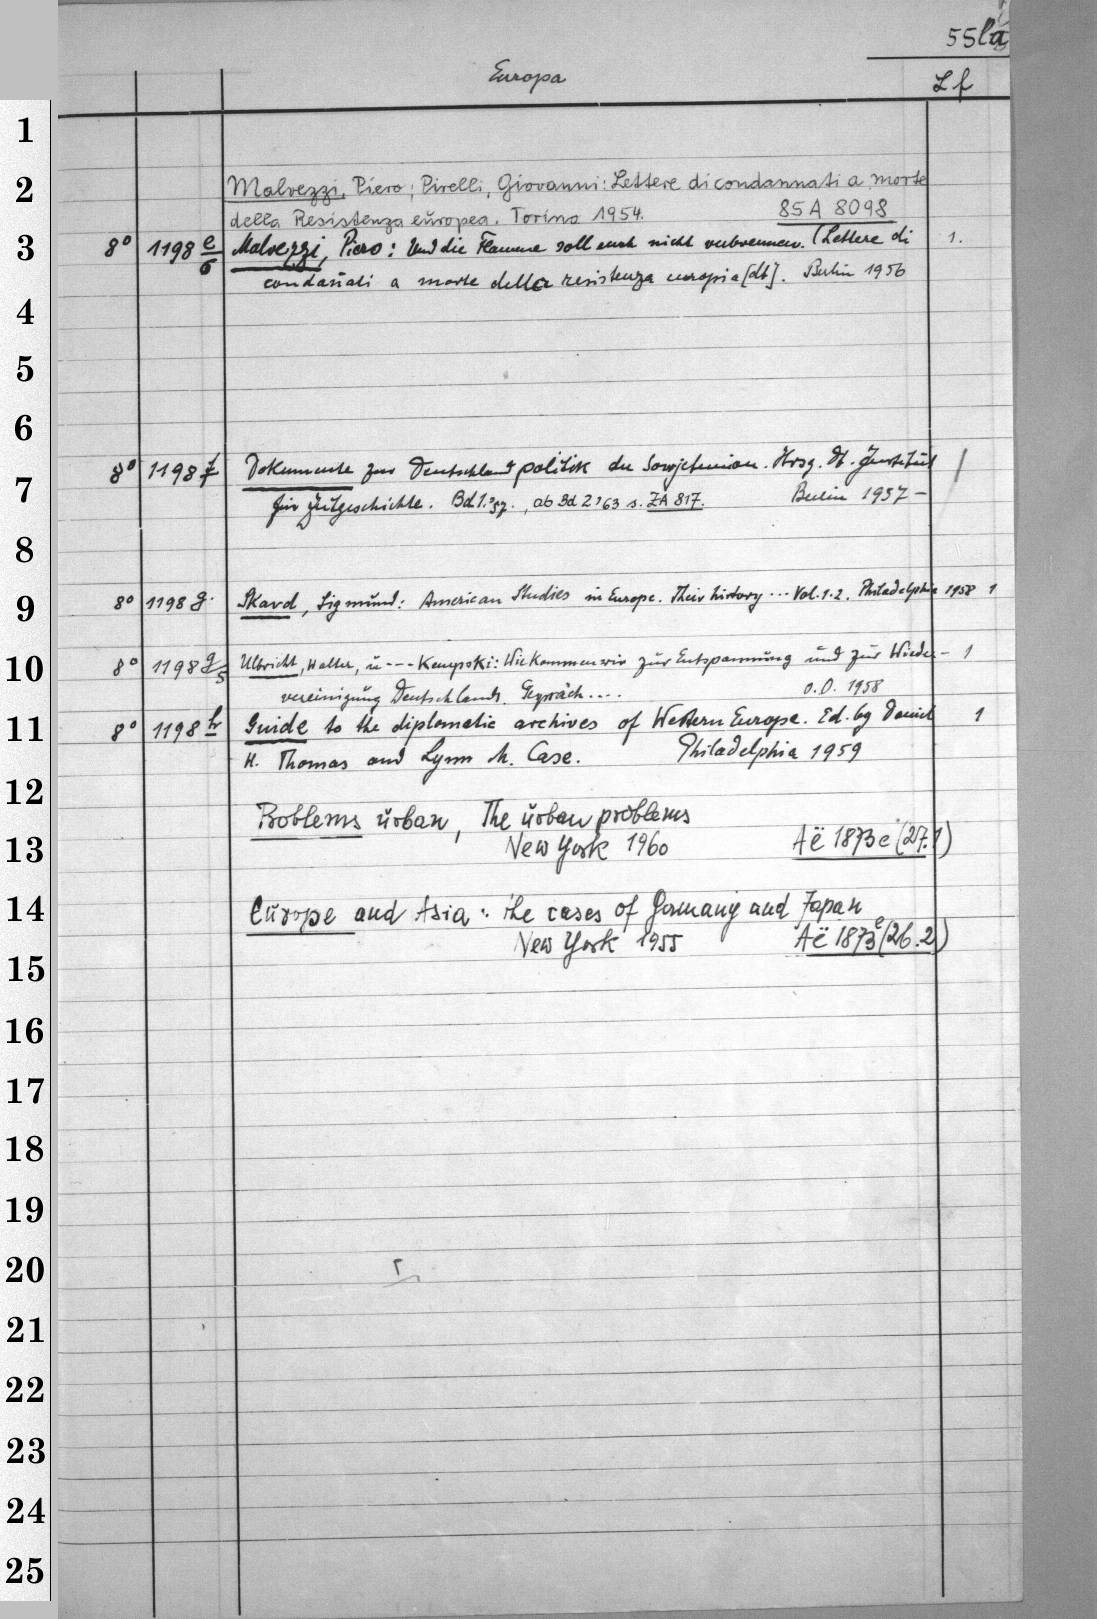 55la
Europa
Lf
1
2 Malvezzi, Piero; Pirelli, Giovanni: Lettere di condannati a morte
della Resistenza europea. Torino 1954. 85A 8098
3 8° 1198 e/6 Malvezzi, Piero: Und die Flamme soll euch nicht verbrennen. (Lettere di 1.
condañati a morte della resistenza europia [dt]. Berlin 1956
4
5
6
8° 1198 f Dokumente zur Deutschlandpolitik der Sowjetunion. Hrsg. Dt. Institut
7 für Zeitgeschichte. Bd 1.'57., ab Bd 2'63 s. ZA 817. Berlin 1957 –
8
9 8° 1198 g. Skard, Sigmund: American Studies in Europe. Their history ... Vol. 1-2. Philadelphia 1958 1
10 8° 1198 g/5 Ulbricht, Walter, u --- Kempski: Wie kommen wir zur Entspannung und zur Wieder- 1
vereinigung Deutschlands. Gespräch.... o.O. 1958
11 8° 1198 h Guide to the diplomatic archives of Western Europe. Ed. by Daniel 1
H. Thomas and Lynn M. Case. Philadelphia 1959
12
Problems urban, The urban problems
13 New York 1960 Aë 1873e (27.1)
14 Europe and Asia: the cases of Germany and Japan
New York 1955 Aë 1873e (26.2)
15
16
17
18
19
20
21
22
23
24
25